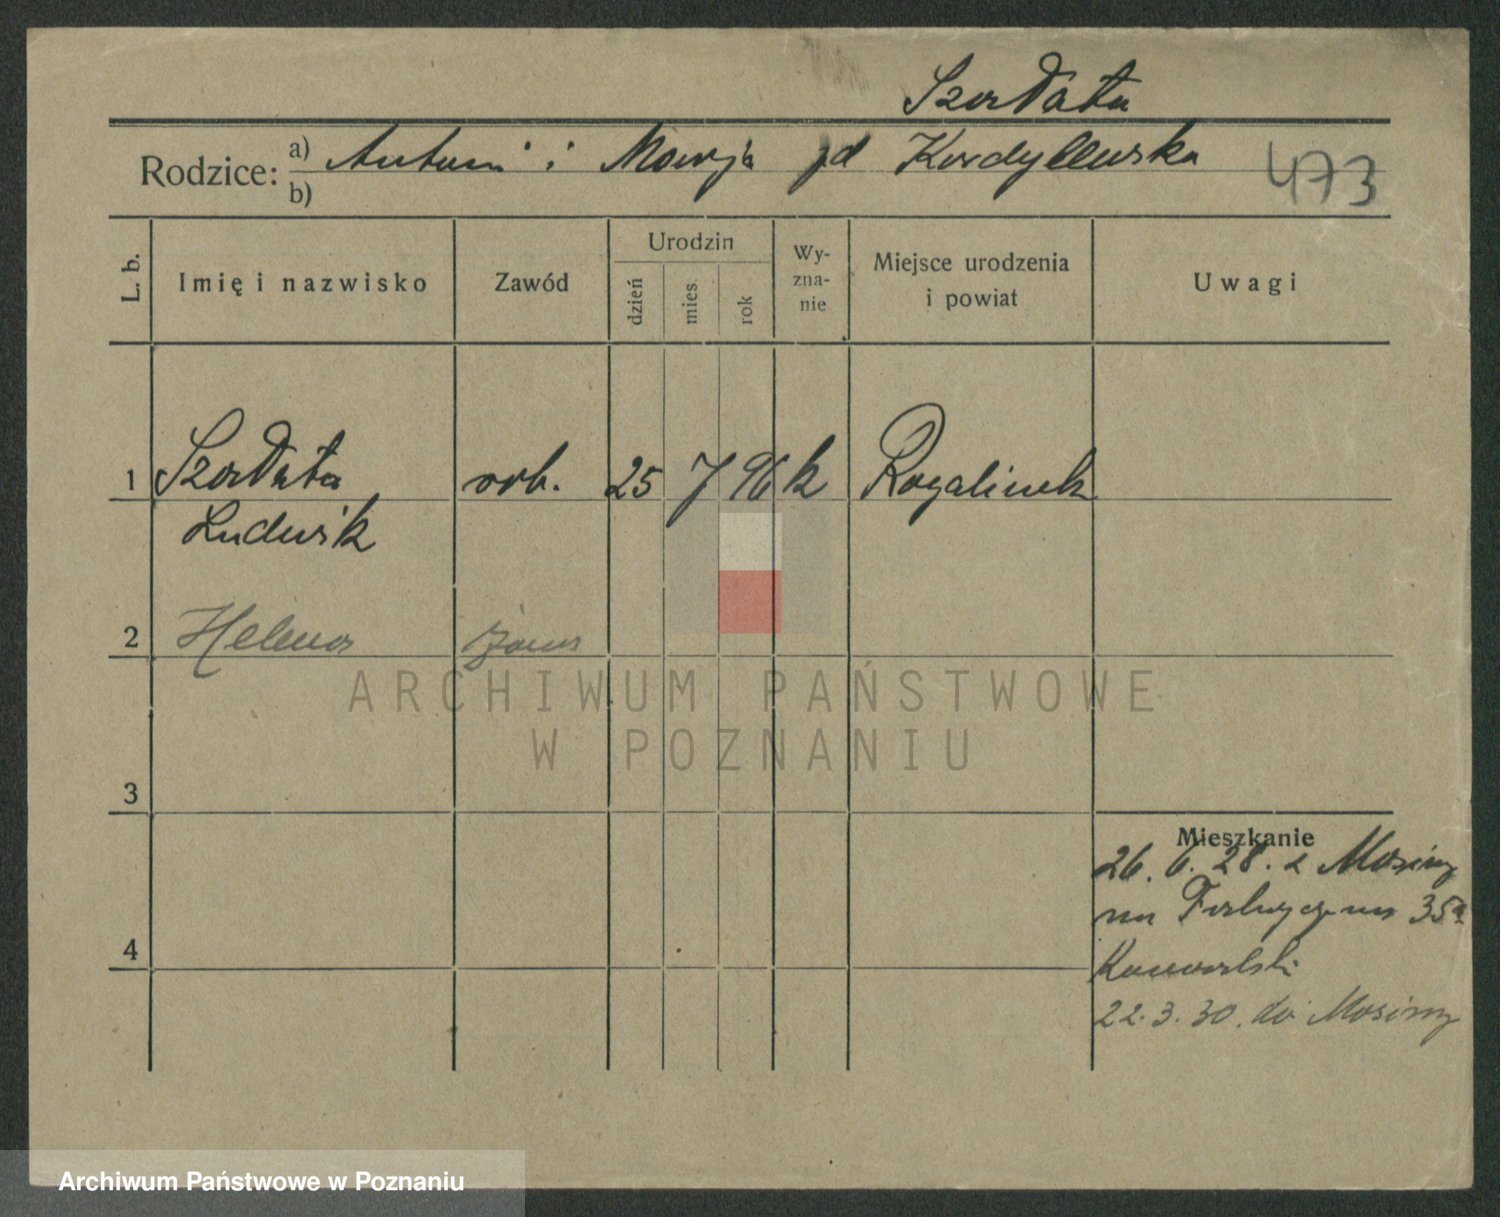 Szarłata
Rodzice: a) Antoni i Marja zd Kordylewska 473
b)
L. b.
Imię i nazwisko
Zawód
Urodzin
dzień
mies.
rok
Wy-
zna-
nie
Miejsce urodzenia
i powiat
Uwagi
1 Szarłata rob. 25 7 96 k Rogalinek
Ludwik
2 Helena żona
3
Mieszkanie
26. 6. 28. z Mosiny
35a
4
22.3.30. do Mosiny
ARCHIWUM PAŃSTWOWE
W POZNANIU
Archiwum Państwowe w Poznaniu